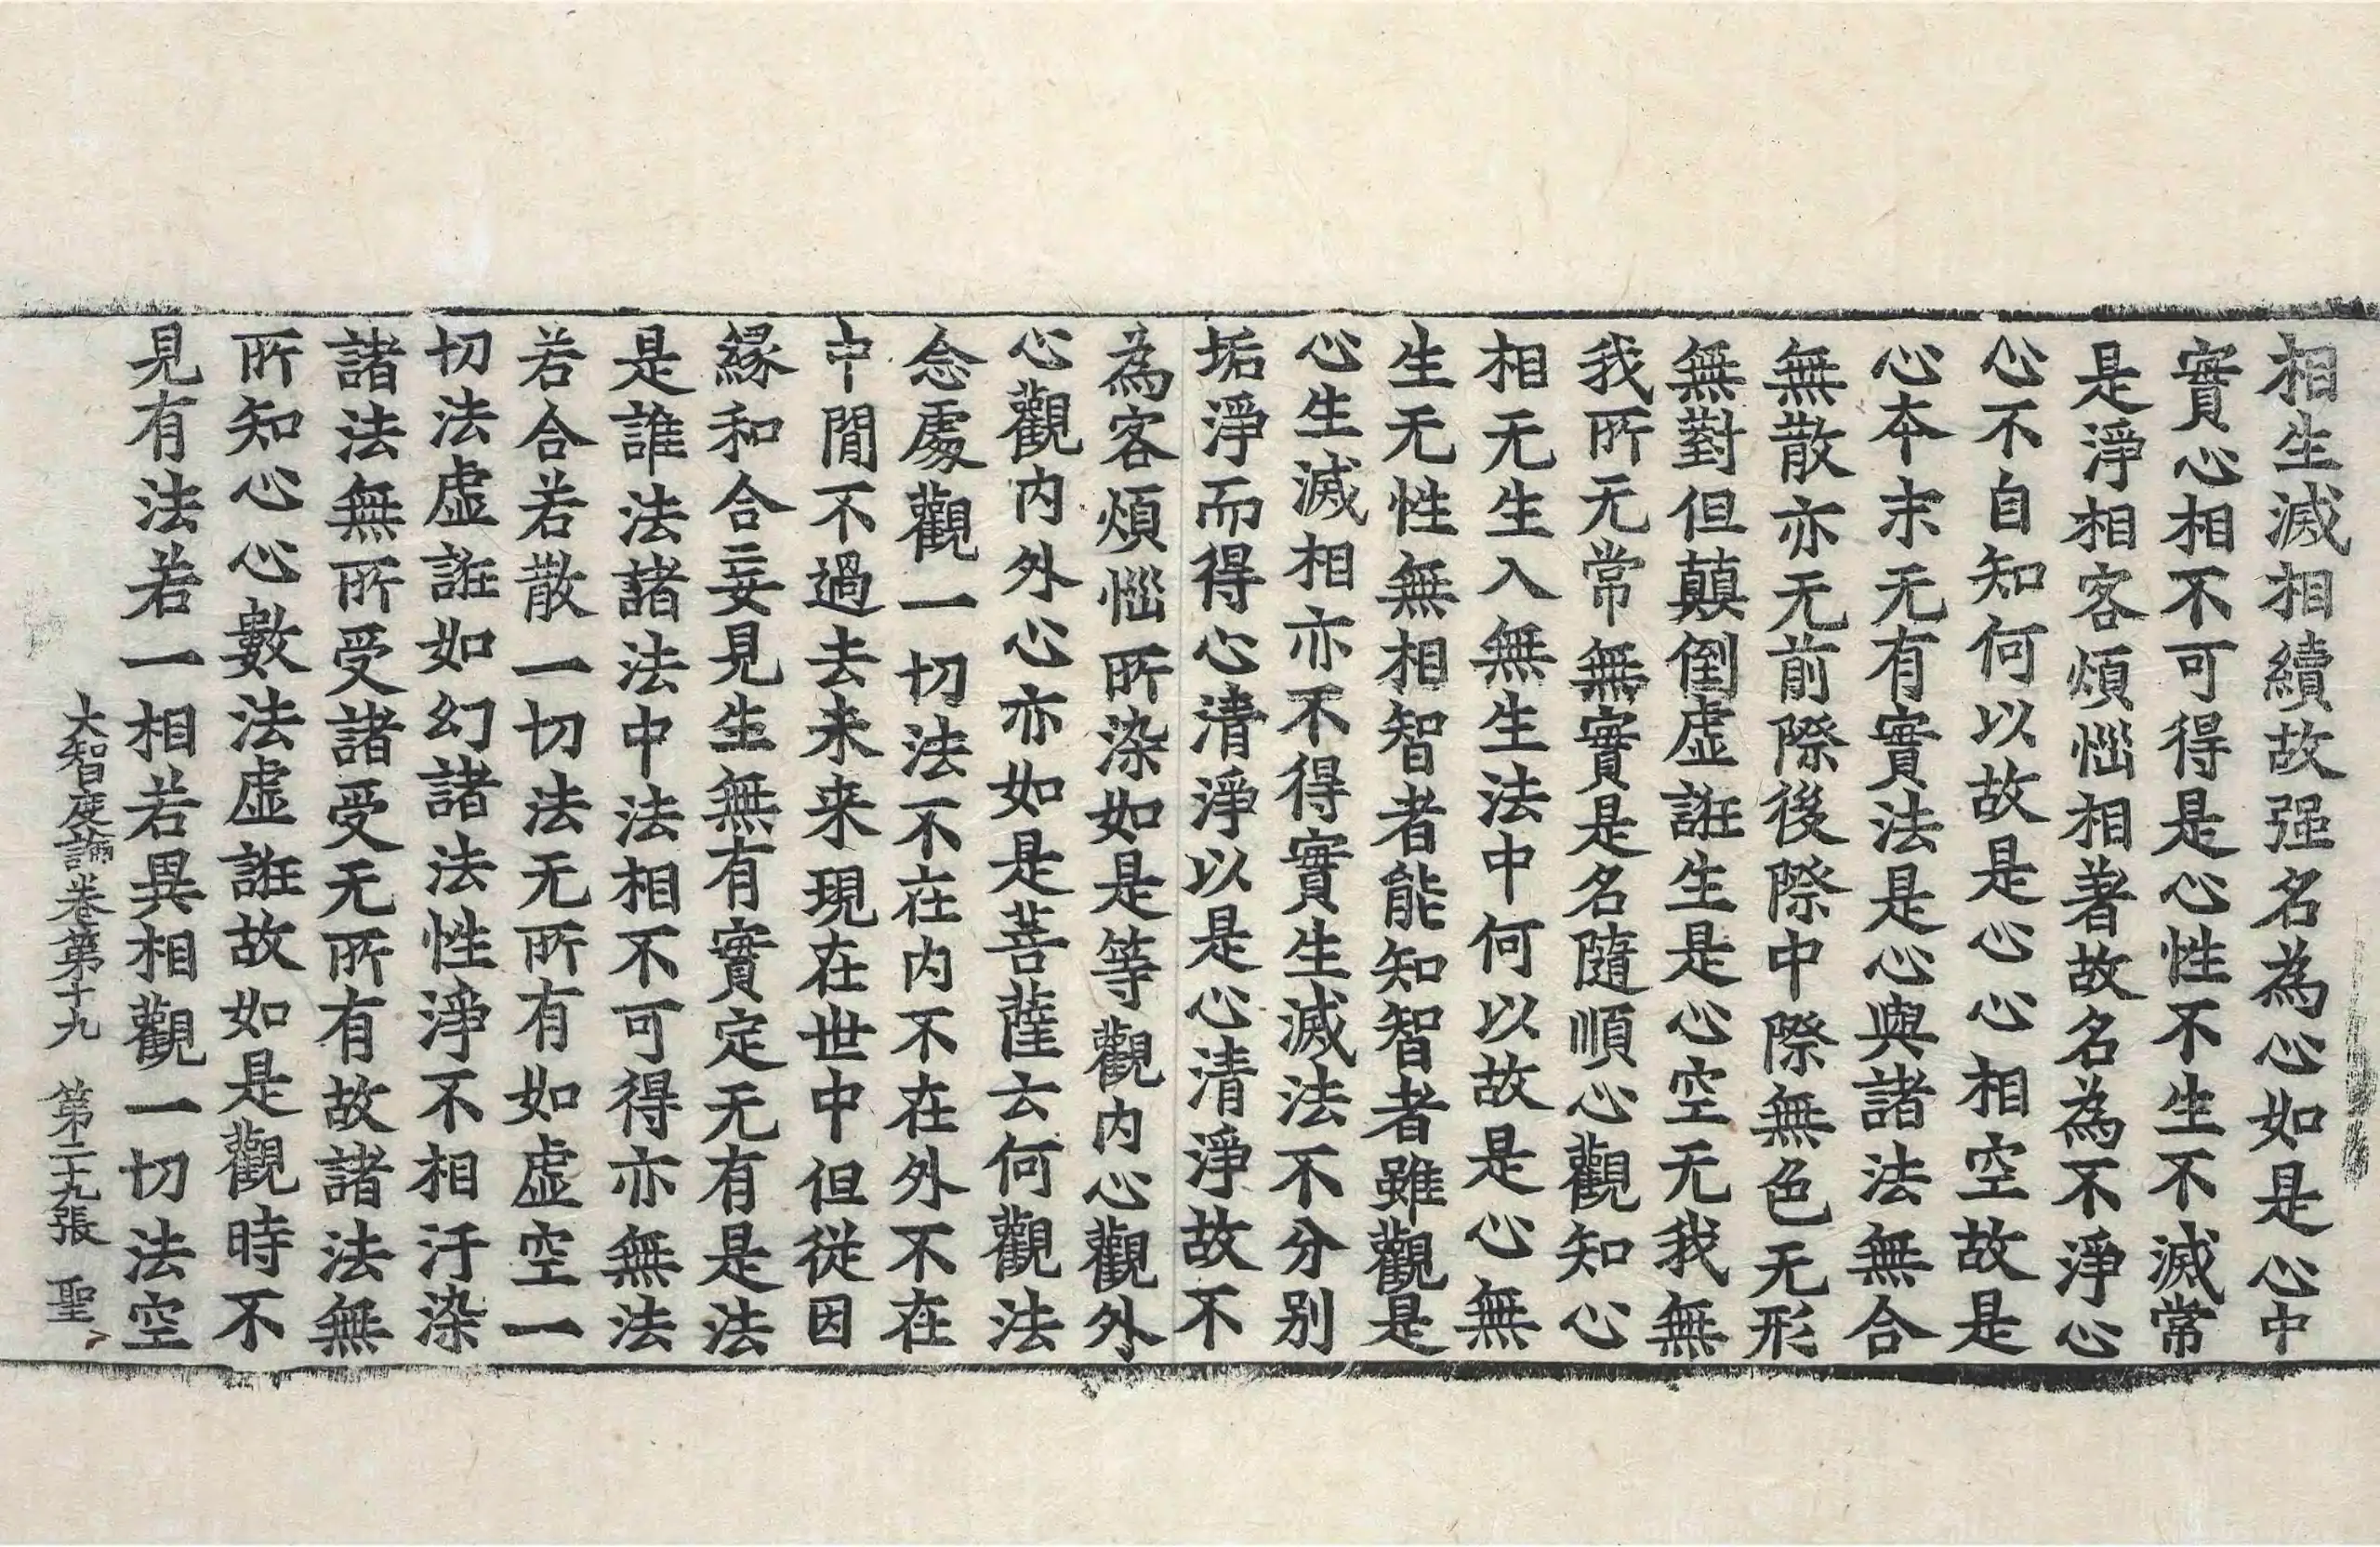 相生滅相續故强名為心如是心中
實心相不可得是心性不生不滅常
是淨相客煩惱相著故名為不淨心
心不自知何以故是心心相空故是
心本末无有實法是心與諸法無合
無散亦无前際後際中際無色无形
無對但顛倒虛誑生是心空无我無
我所无常無實是名隨順心觀知心
相无生入無生法中何以故是心無
生无性無相智者能知智者雖觀是
心生滅相亦不得實生滅法不分别
垢淨而得心清淨以是心清淨故不
為客煩惱所染如是等觀內心觀外
心觀内外心亦如是菩薩云何觀法
念處觀一切法不在内不在外不在
中閒不過去未来現在世中但從因
緣和合妄見生無有實定无有是法
是誰法諸法中法相不可得亦無法
若合若散一切法无所有如虛空一
切法虛誑如幻諸法性淨不相汙染
諸法無所受諸受无所有故諸法無
所知心心數法虛誑故如是觀時不
見有法若一相若異相觀一切法空
大智度論卷第十九 第二十九張 聖